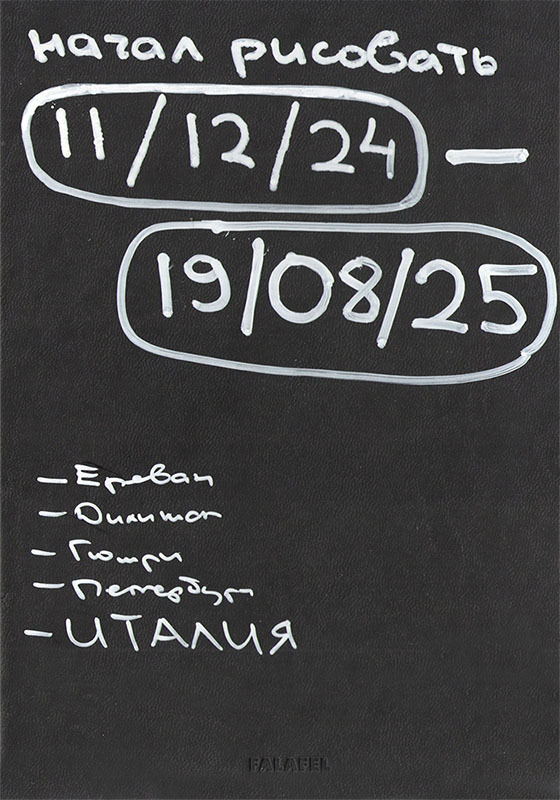 начал рисовать
11/12/24 —
19/08/25
– Ереван
– Дилижан
– Гюмри
– Петербург
– ИТАЛИЯ
FALAFEL